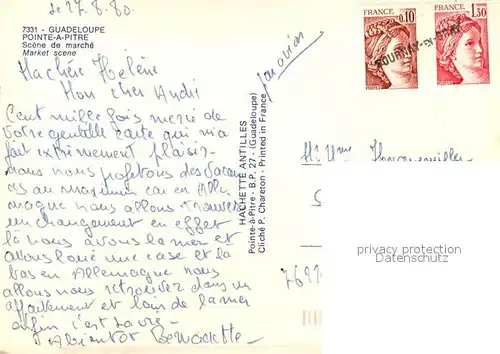 le 27.8.80.
7331 - GUADELOUPE
POINTE-A-PITRE
Scène de marché
Market scene
Ma chère Helene
Mon cher André
Cent mille fois merci de
votre gentille carte qui m'a
fait extrêmement plaisir.
Nous nous profitons des vacan
ces au maximum car en Alle
magne nous allons trouver
un changement en effet
là nous avons la mer et
allons loué une case et la
bas en Allemagne nous
allons nous retrouver dans un
appartement et loin de la mer
enfin c'est la vie.
A bientôt Bernadette
par avion
HACHETTE ANTILLES
Pointe-à-Pitre - B.P. 27 - (Guadeloupe)
Cliché P. Chareton - Printed in France
FRANCE
0,10
POSTES
FRANCE
1,30
POSTES
GOURNAY-EN-BRAY
Mr Mme
privacy protection
copyright protection